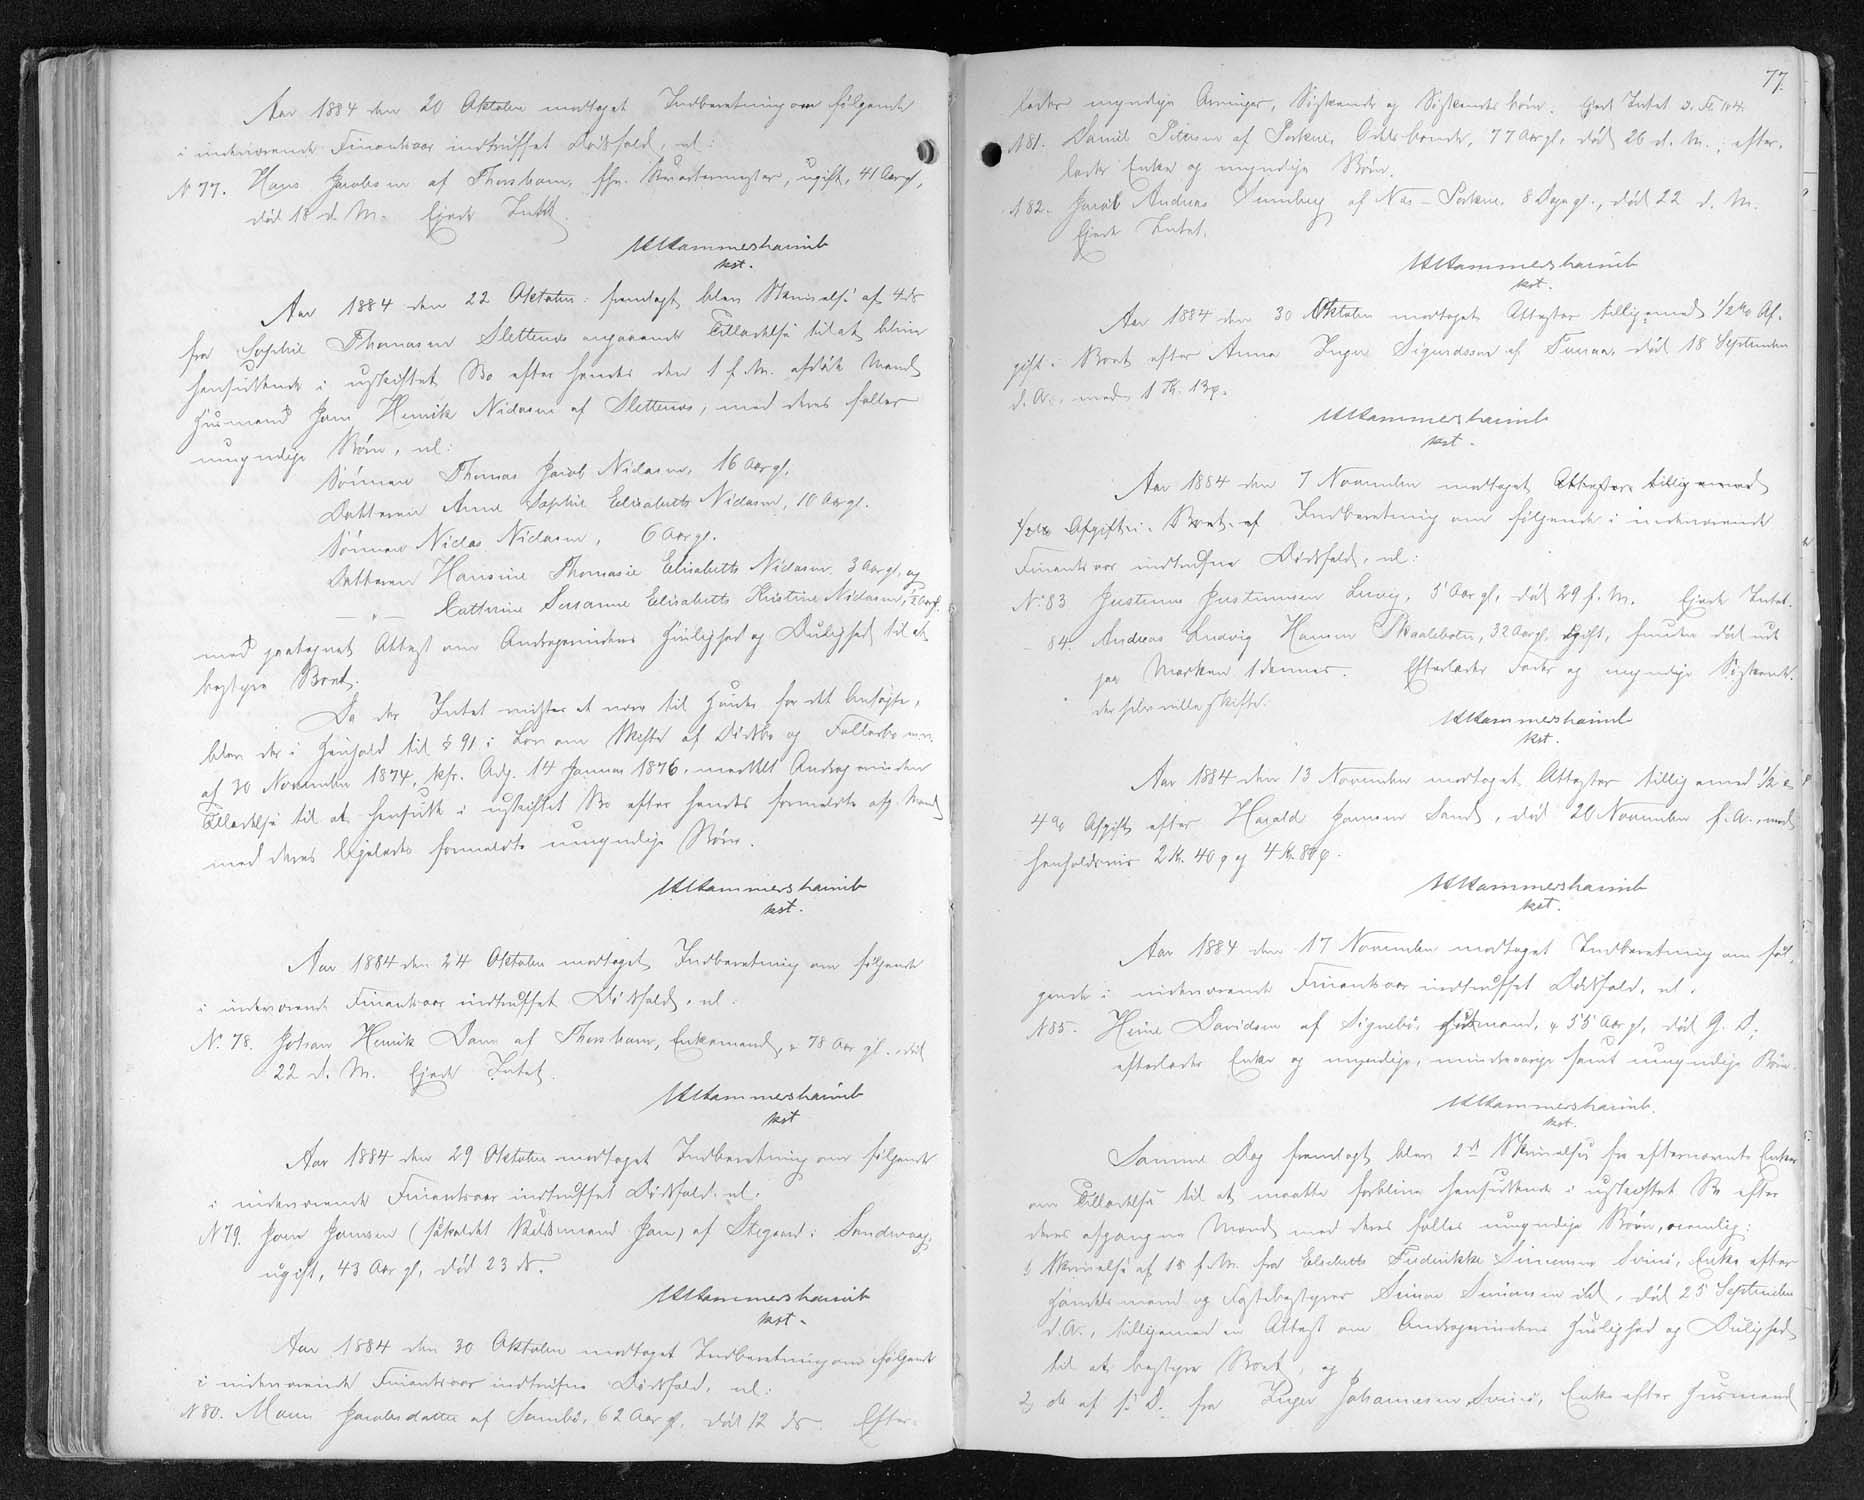 Aar 1884 den 20 Oktober modtaget Indberetning om følgende
i indeværende Finantsaar indtruffet Dødsfald, nl:
N 77. Hans Jacobsen af Thorshavn, fhv. Kvartermester, ugift, 41 Aar gl,
død 18 d. M. Ejede Intet.
kst.
Aar 1884 den 22 Oktober fremlagt blev Skrivelse af 4 ds
fra Sophie Thomasen Slettenæs angaaende Tilladelse til at blive
hensiddende i uskiftet Bo efter hendes den 1 f. M. afdøde Mand
Husmand Joen Henrik Niclasen af Slettenæs, med deres fælles
umyndige Børn, nl:
Sønnen Thomas Jacob Niclasen, 16 Aar gl,
Datteren Anne Sophie Elisabeth Niclasen, 10 Aar gl.
Sønnen Niclas Niclasen, 6 Aar gl.
Datteren Hansine Thomasie Elisabeth Niclasen 3 Aar gl, og
— " — Cathrine Susanne Elisabeth Kristine Niclasen, ½ Aar gl.
med paategnet Attest om Andragerindens Huuslighed og Duelighed til at
bestyre Boet.
Da der Intet vidstes at være til Hinder for det Ansøgte,
blev der i Henhold til § 91 i Lov om Skifte af Dødsbo og Fællesbo m.v.
af 30 November 1874, kfr. Adg. 14 Januar 1876, meddelt Andragerinden
Tilladelse til at hensidde i uskiftet Bo efter hendes formeldte afd. Mand
med deres ligeledes formeldte umyndige Børn.
kst.
Aar 1884 den 24 Oktober modtaget Indberetning om følgende
i indeværende Finantsaar indtruffet Dødsfald, nl:
N. 78. Johan Henrik Dam af Thorshavn, Enkemand, 78 Aar gl., død
22 d. M. Ejede Intet.
kst
Aar 1884 den 29 Oktober modtaget Indberetning om følgende
i indeværende Finantsaar indtruffet Dødsfald, nl.
N 79. Joen Joensen (såkaldet Joen) af i Sandevaag,
ugift, 43 Aar gl, død 23 ds.
kst.
Aar 1884 den 30 Oktober modtaget Indberetning om følgende
i indeværende Finantsaar indtrufne Dødsfald, nl:
N 80. Maren Jacobsdatter af Sambø, 62 Aar gl. død 12 ds. Efter-
77.
lader myndige Arvinger, Søskende og Søskendebørn. Ejede Intet
N 81. Daniel Petersen af Porkere, Odelsbonde, 77 Aar gl, død 26 d. M.; efter-
lader Enke og myndige Børn.
N 82. Jacob Andreas af Næs - Porkere, 8 Dage gl., død 22 d. M.
Ejede Intet.
kst.
Aar 1884 den 30 Oktober modtaget Attester tilligemed ½% Af-
gift i Boet efter Anna Inger Sigurdsson af død 18 September
d. A., med 1 Kr. 13 ø.
kst.
Aar 1884 den 7 November modtaget Attester tilligemed
½% Afgift i Boet af Indberetning om følgende i indeværende
Finantsaar indtrufne Dødsfald, nl:
N. 83 Justinus Justinussen 5 Aar gl, død 29 f. M. Ejede Intet.
- 84. Andreas Ludvig Hansen 32 Aar gl, ugift, funden død ude
paa Marken 1 dennes. Efterlader Fader og myndige Søskende,
der selv ville skifte.
kst.
Aar 1884 den 13 November modtaget Attester tilligemed ½ &
4% Afgift efter Harald Joensen Sand, død 20 November f. A., med
henholdsvis 2 Kr. 40 ø og 4 Kr. 80 ø.
kst.
Aar 1884 den 17 November modtaget Indberetning om føl-
gende i indeværende Finantsaar indtruffet Dødsfald, nl.
N 85. Heine Davidsen af Signebø, Husmand, 55 Aar gl, død 9. ds;
efterlader Enke og myndige, mindreaarige samt umyndige Børn.
kst.
Samme Dag fremlagt blev 2de Skrivelser fra efternævnte Enker
om Tilladelse til at maatte forblive hensiddende i uskiftet Bo efter
deres afgangne Mænd med deres fælles umyndige Børn, nemlig:
1) Skrivelse af 18 f. M. fra Elsebeth Frederikke Simonsen Svinø, Enke efter
Handelsmand og Fæstebestyrer Simon Simonsen ibd, død 25 September
d. A., tilligemed en Attest om Andragerindens Huuslighed og Duelighed
til at bestyre Boet, og
2) do af s. D. fra Inger Johannesen Svinø, Enke efter Husmand